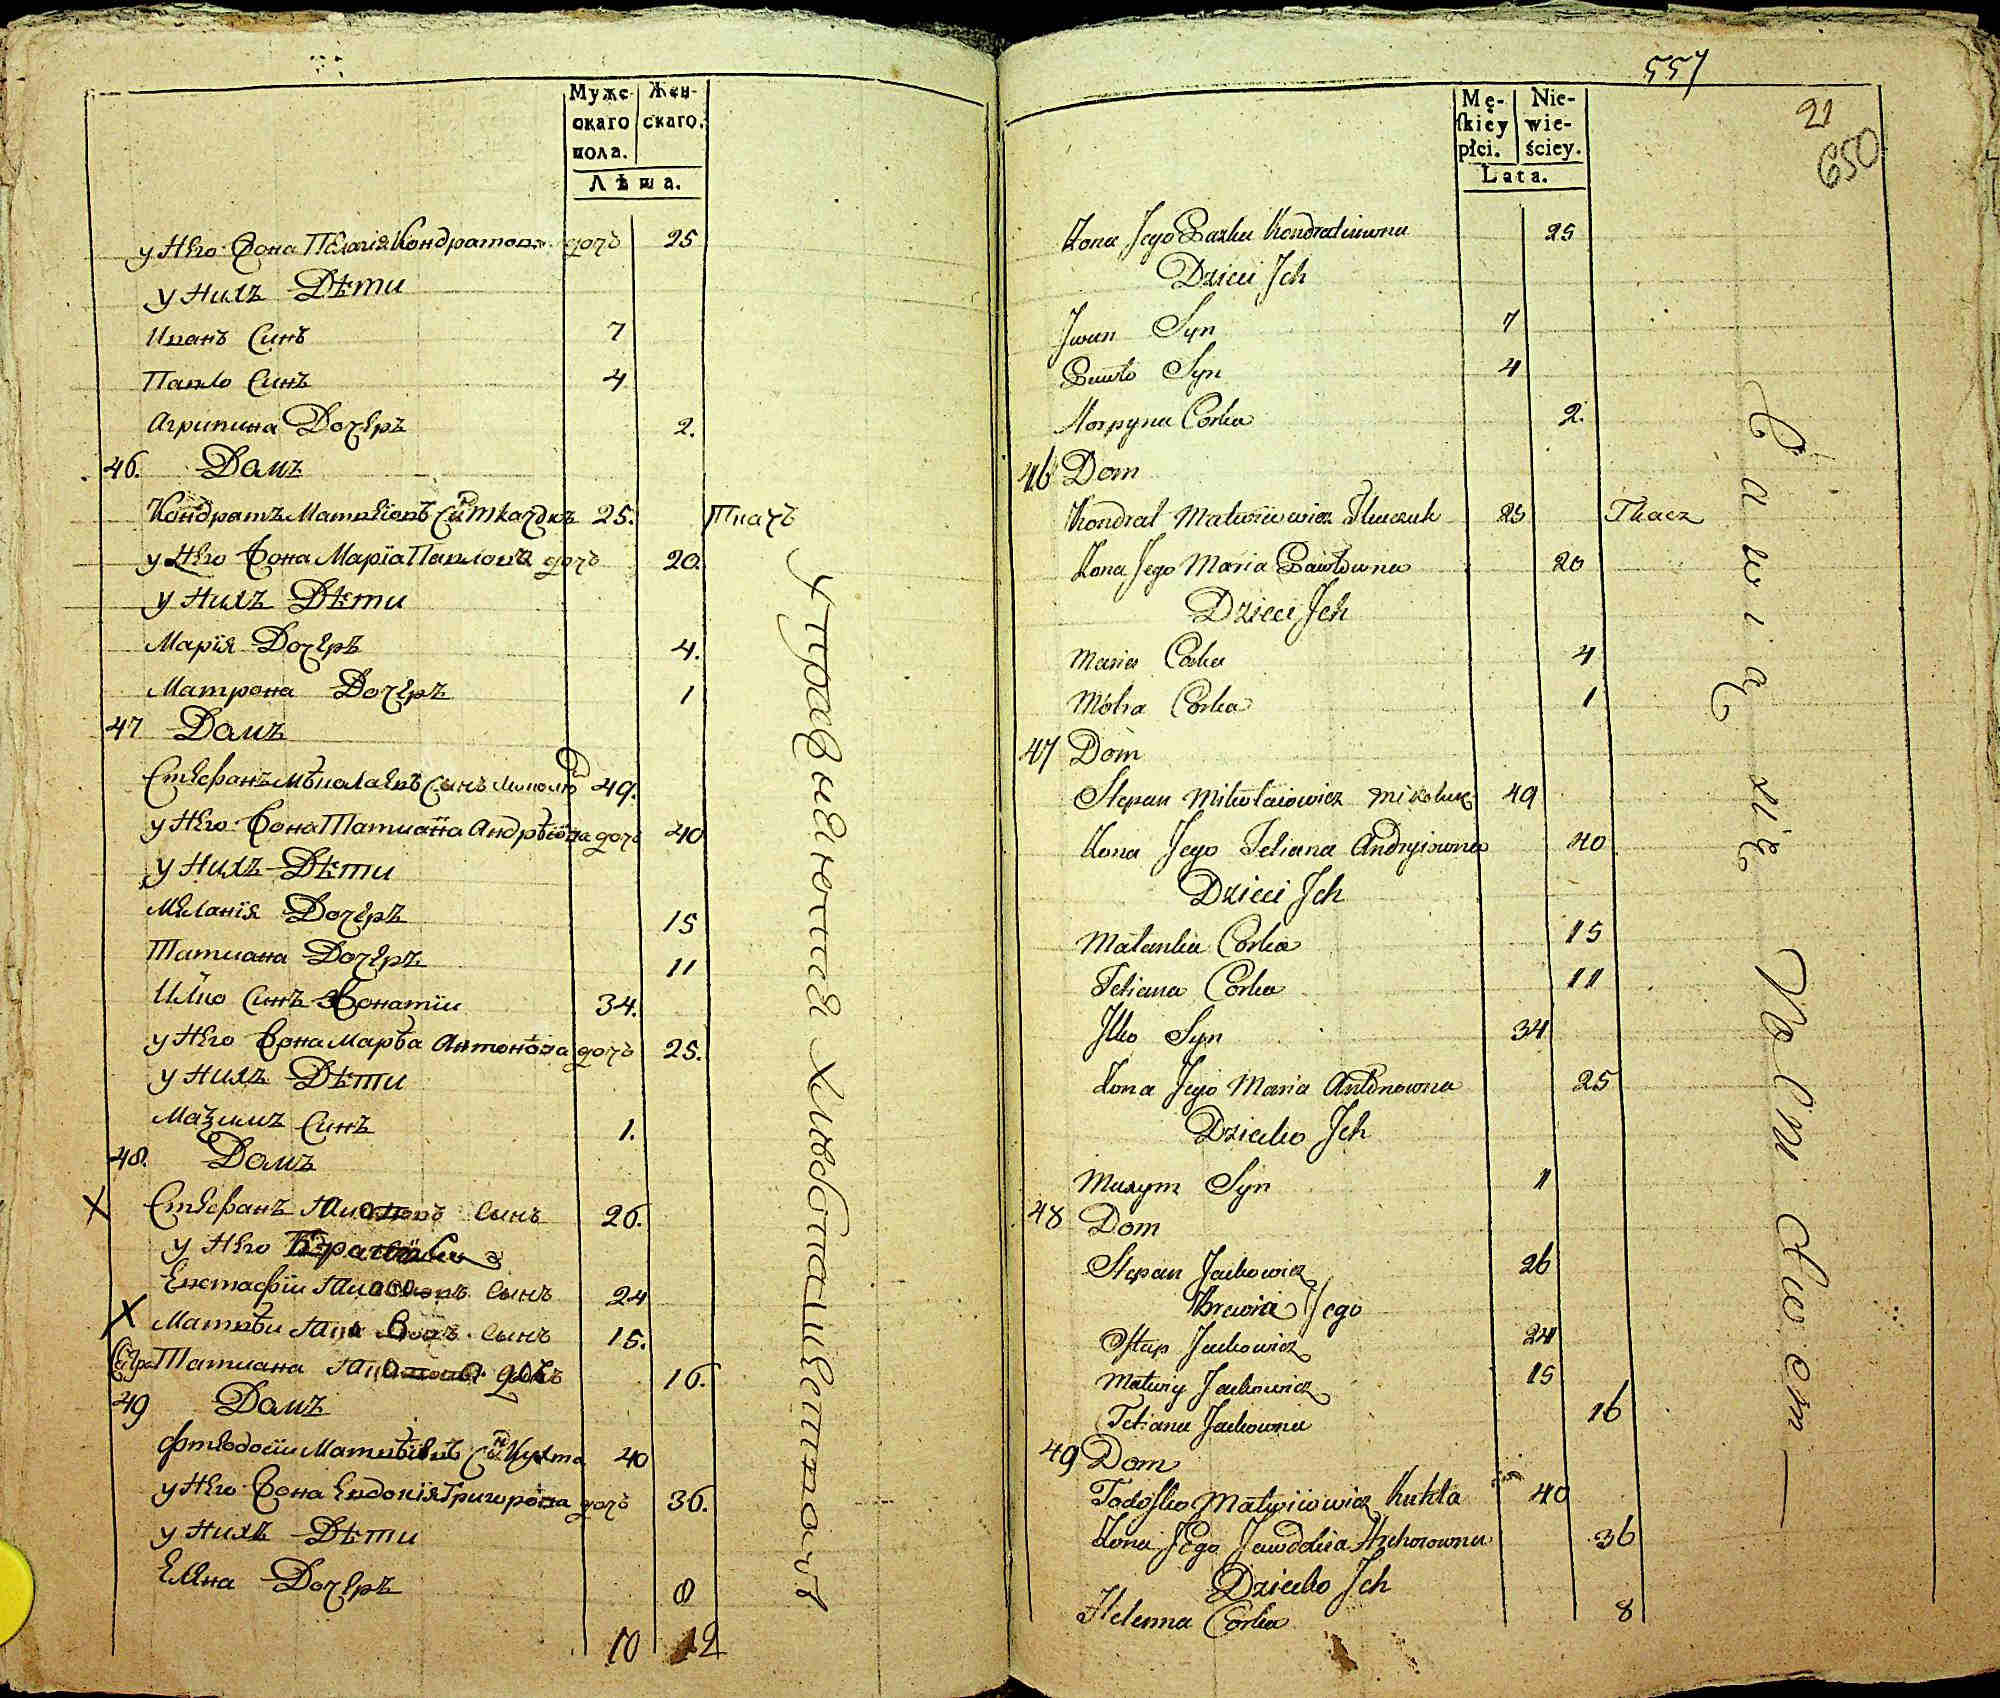 Муже-
скаго
пола.
Жен-
скаго.
Лѣта.
у Него Жона Пелагія Кондратова дочь 25
у Нихъ Дѣти
Иванъ Синъ 7
Павло Синъ 4
Агрипина Дочеръ 2.
46. Домъ
Кондратъ Матвіевъ Синъ Ткачукъ 25. Ткачъ
у Него Жона Марїа Павлова дочь 20.
у Нихъ Дѣти
Марїя Дочеръ 4.
Матрона Дочеръ 1
47 Домъ
Стефанъ Синъ 49.
у Него Жона Татиана Андрѣева дочь 40
у Нихъ Дѣти
Меланїя Дочеръ 15
Татиана Дочеръ 11
Илко Синъ Жонатїи 34.
у Него Жона Марѳа Антонова дочь 25.
у Нихъ Дѣти
Маѯимъ Синъ 1.
48. Домъ
Х Стефанъ сынъ 26.
у Него
Евстафїи сынъ 24
Х Матвѣи сынъ 15.
Татиана 16.
49 Домъ
Фтеодосїи Матвѣевъ Синъ Кухта 40
у Него Жона Евдокїя Григорова дочь 36.
у Нихъ Дѣти
Елена Дочеръ 8
10 12
Упражняются хлѣбопашествомъ
557
21
650
Mę-
skiey
płci.
Nie-
wie-
ściey.
Lata.
Żona Jego Pazka Kondratiuwna 25
Dzieci Jch
Jwan Syn 7
Pawło Syn 4
Horpyna Corka 2.
46 Dom
Kondrat Matwiiowicz Tkaczuk 25 Tkacz
Żona Jego Maria Pawłowna 20
Dzieci Jch
Maria Corka 4
Motra Corka 1
47 Dom
Stepan Mikołaiowicz Mikoluk 49
Żona Jego Tetiana Andryiowna 40
Dzieci Jch
Małanka Corka 15
Tetiana Corka 11
Jlko Syn 34
Żona Jego Maria Antonowna 25
Dziecko Jch
Maxym Syn 1
48 Dom
Stepan Jackowicz 26
Krewni Jego
Ostap Jackowicz 24
Matwiy Jackowicz 15
Tetiana Jackowna 16
49 Dom
Todosko Matwiiowicz Kuhta 40
Żona Jego Jawdokia Hrehorowna 36
Dziecko Jch
Helenna Corka 8
Bawią się Rolnictwem